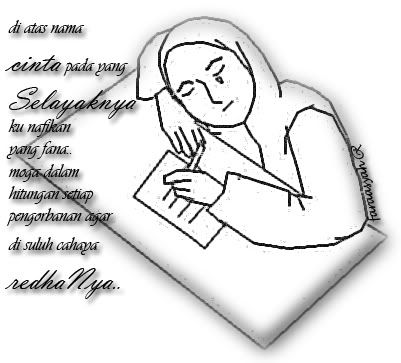 di atas nama
cinta pada yang
Selayaknya
ku nafikan
yang fana..
moga dalam
hitungan setiap
pengorbanan agar
di suluh cahaya
redhaNya..